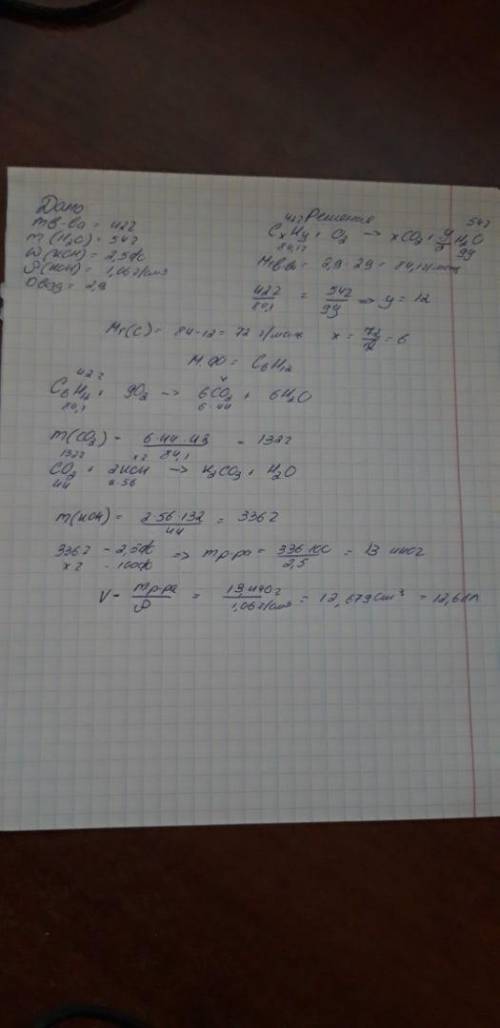 Дано
m в-ва = 42г
m (H₂O) = 54г
ω(KOH) = 2,5%
ρ(KOH) = 1,06г/см³
D возд = 2,9
42г Решение 54г
CₓHy + O₂ → xCO₂ + y/2 H₂O
84,1г 9y
Mr в-ва = 2,9 · 29 = 84,1г/моль
42г/84,1 = 54г/9y => y = 12
Mr(C) = 84-12 = 72 г/моль x = 72/12 = 6
М.ФО = C₆H₁₂
42г x
C₆H₁₂ + 9O₂ → 6CO₂ + 6H₂O
84,1 6·44
m(CO₂) = 6·44·43/84,1 = 132г
132г x г
CO₂ + 2KOH → K₂CO₃ + H₂O
44 2·56
m(KOH) = 2·56·132/44 = 336г
336г - 2,5% => m р-ра = 336·100/2,5 = 13 440г
x г - 100%
V = m р-ра/ρ = 13440г/1,06г/см³ = 12,679 см³ = 12,68л